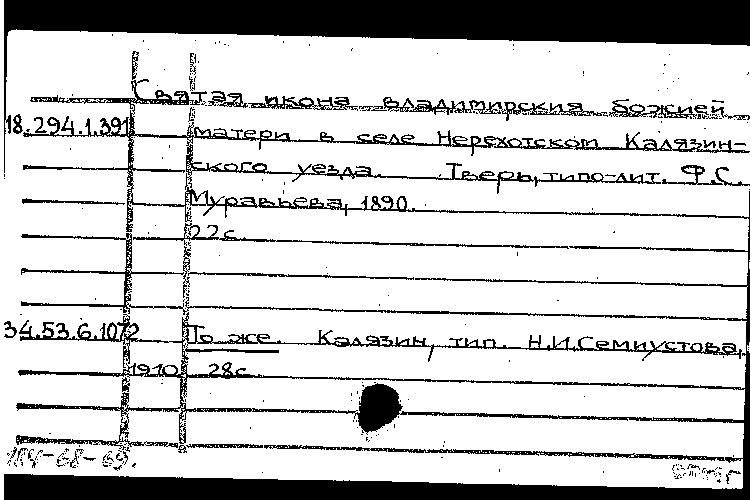 Святая икона владимирския божией
18.294.1.391 матери в селе Нерехотском Калязин-
ского уезда. Тверь, типо-лит. Ф.С.
Муравьева, 1890.
22с.
34.53.6.1072 То же. Калязин, тип. Н.И.Семиустова,
1910. 28с.
184-68-69.